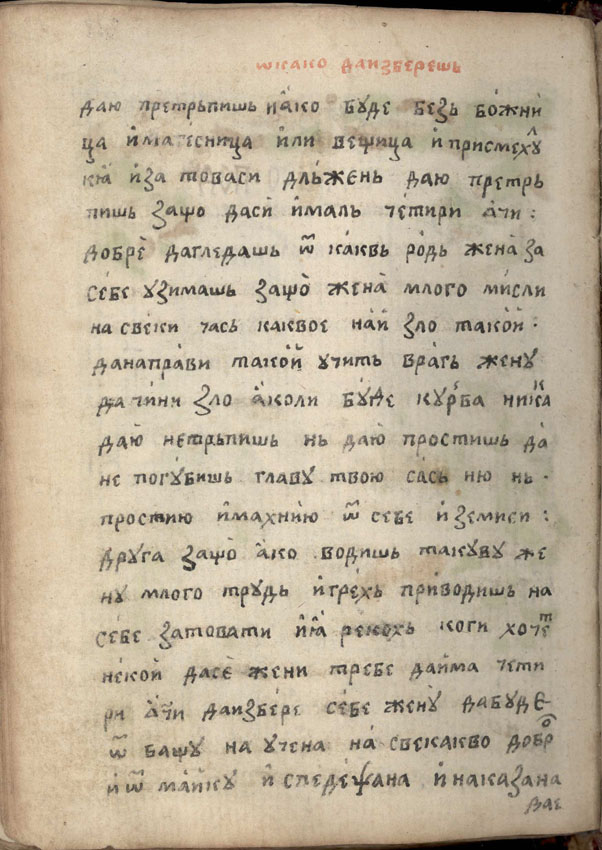 ѡ како да изберешь
даю претрьпишь и҆ а҆ко буде безь бо́жни
ца и҆ магесница или вещица и҆ присмехꙋ
кїа̀ и҆ за товаси дль́жень даю претрь
пишь защо даси и҆маль че́тири а҆чи :
добрѐ да гледашь ѿ ка́квь ро́дь жена̀ за
се́бе узимашь защо̀ жена̀ млого ми́сли
на свеки часъ каквое на́й зло такой ·
да напра́ви такой учить врагь женꙋ
да чи́ни зло а҆коли бꙋ́де кꙋ́рва ника
даю̀ нетрьпишь нь даю простишь да̀
не погꙋ́бишь главꙋ̀ твою са́сь ню нь ·
прости ю и҆махни ю̀ ѿ себе и҆ земиси :
дрꙋга защо̀ а҆ко водишь такꙋвꙋ же
нꙋ̀ млого трꙋдь и҆ грехь приводишь на
се́бе затовати и҆ı҆а̀ реко́хь коги хоче́ᵗ
не́кой дасѐ жени требе да и҆ма чети
ри а҆чи да избе́ре се́бе женꙋ̀ да бꙋдѐ
ѿ бащꙋ научена на све какво до́бро
и҆ ѿ ма́йкꙋ и҆ спеде́ѱана и҆ наказана
вае